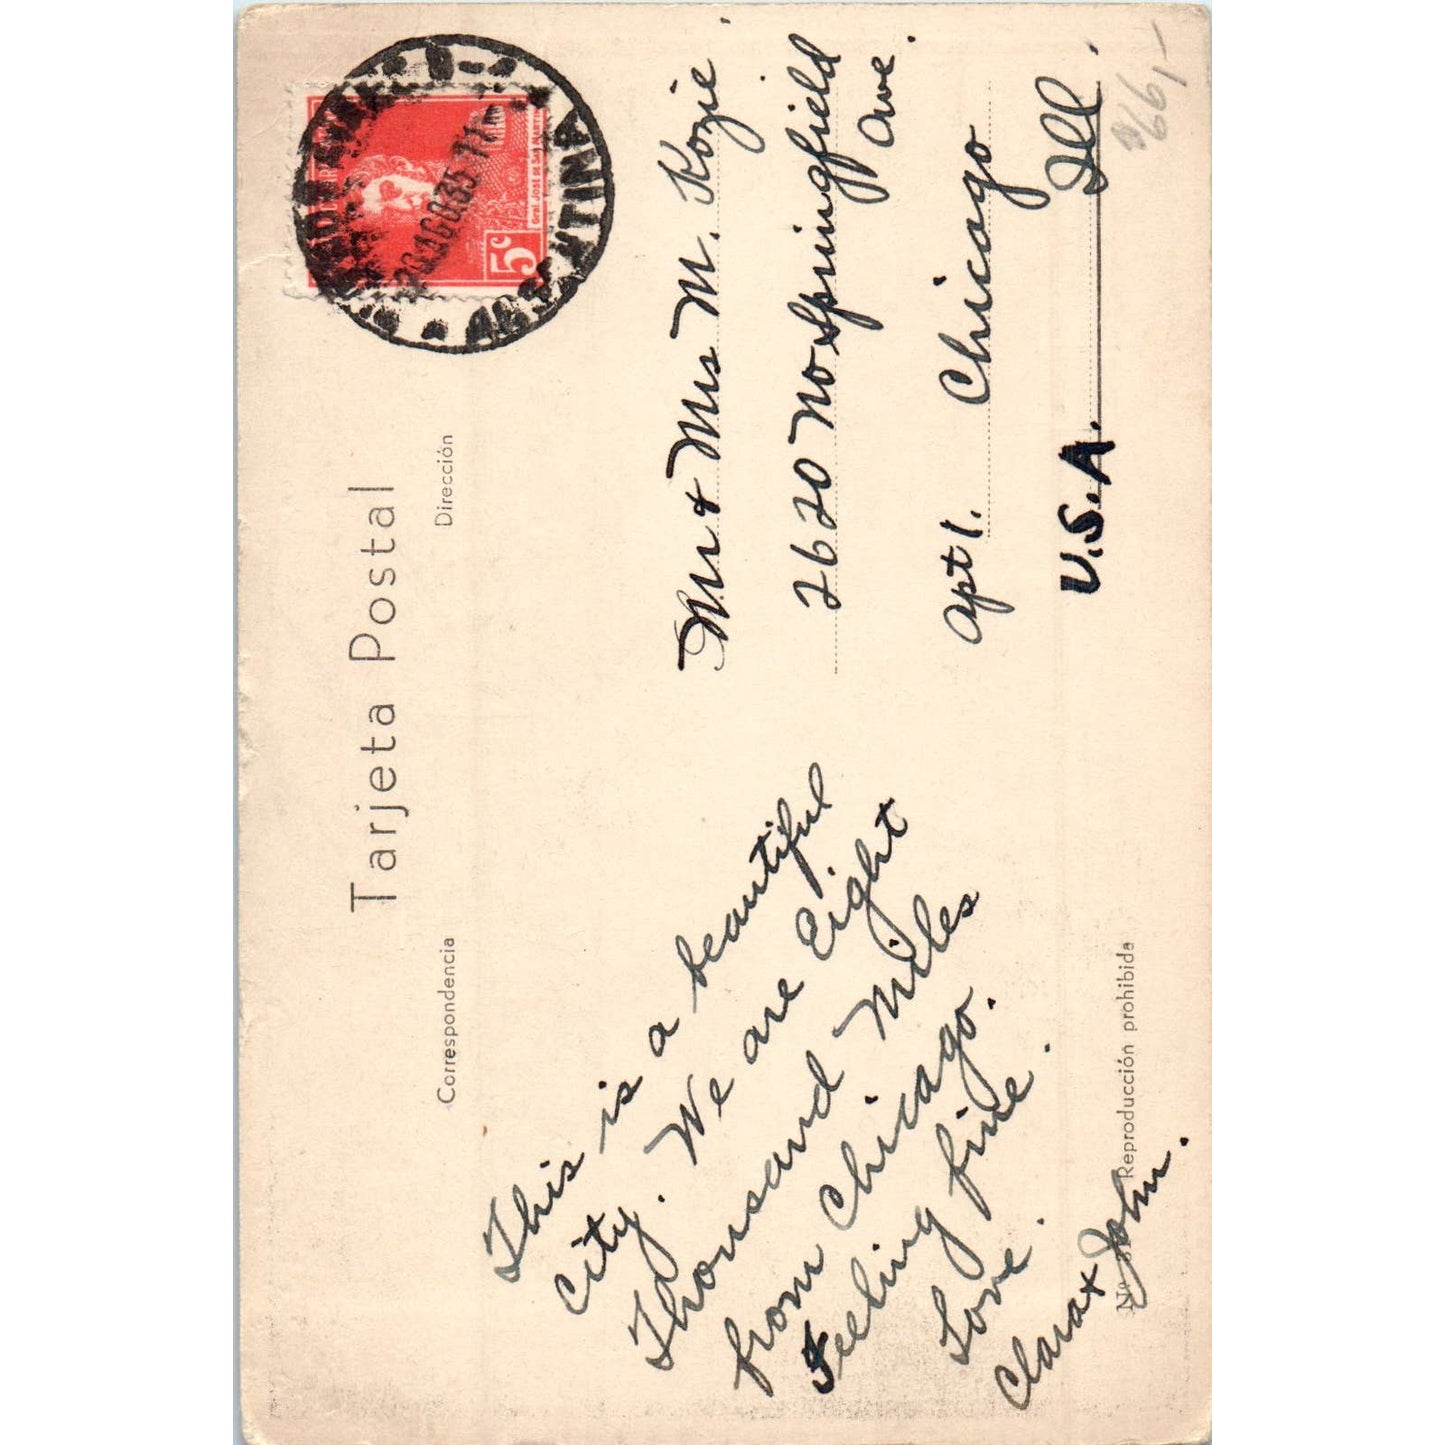 Tarjeta Postal
Correspondencia
Dirección
This is a beautiful
City. We are Eight
Thousand Miles
from Chicago.
Feeling fine.
Love.
Clara + John.
Mr & Mrs M. Kozie
2620 No Springfield
Ave.
Apt 1. Chicago
Ill.
U.S.A.
Nº
Reproducción prohibida
5c
Gral José de San Martín
ARGENTINA